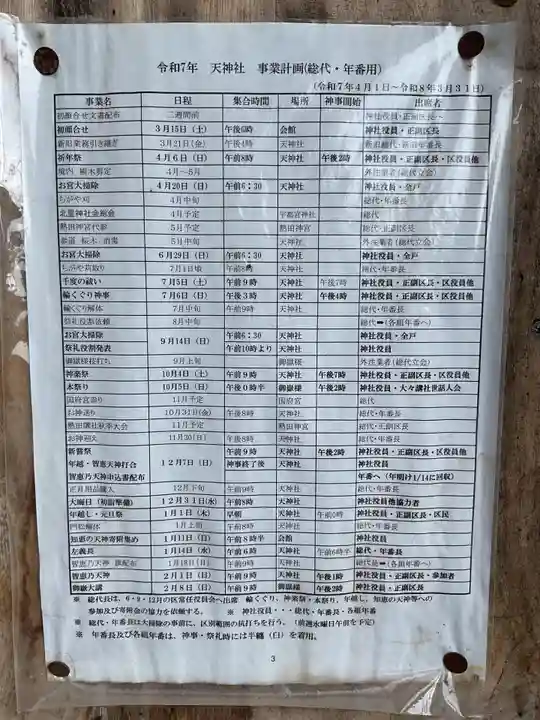 令和7年 天神社 事業計画(総代・年番用)
(令和7年4月1日～令和8年3月31日)
事業名 日程 集合時間 場所 神事開始 出席者
初顔合せ文書配布 二週間前 神社役員・正副区長へ
初顔合せ 3月15日(土) 午後6時 会館 神社役員・正副区長
新旧業務引き継ぎ 3月21日(金) 午後4時 天神社 新旧総代・新旧年番長
祈年祭 4月6日(日) 午前8時 天神社 午後2時 神社役員・正副区長・区役員他
境内 樹木剪定 4月～5月 外注業者(総代立会)
お宮大掃除 4月20日(日) 午前6:30 天神社 神社役員・全戸
ちがや刈 4月中旬 総代・年番長
北里神社会総会 4月予定 宇都宮神社 総代
熱田神宮代参 5月予定 熱田神宮 総代・正副区長
参道 桜木 消毒 5月中旬 天神社 外注業者(総代立会)
お宮大掃除 6月29日(日) 午前6:30 天神社 神社役員・全戸
ちがや頁取り 7月1日頃 午前8時 天神社 総代・年番長
千度の祓い 7月5日(土) 午前9時 天神社 午後7時 神社役員・正副区長・区役員他
輪くぐり神事 7月6日(日) 午後3時 天神社 午後4時 神社役員・正副区長・区役員他
輪くぐり解体 7月中旬 午前9時 天神社 総代・年番長
祭礼役割依頼 8月中旬 総代➡(各組年番へ)
お宮大掃除 9月14日(日) 午前6:30 天神社 神社役員・全戸
祭礼役割発表 午前10時より 天神社 神社役員
御嶽様枝打ち 9月上旬 御嶽様 外注業者(総代立会)
神楽祭 10月4日(土) 午前9時 天神社 午後7時 神社役員・正副区長・区役員他
本祭り 10月5日(日) 午後0時半 御嶽様 午後2時 神社役員・大々講社世話人会
国府宮巡り 11月予定 国府宮 総代
お神送り 10月31日(金) 午後8時 天神社 総代・年番長
熱田講社秋季大会 11月予定 熱田神宮 総代・正副区長
お神迎え 11月30日(日) 午後8時 天神社 総代・年番長
新嘗祭 12月7日(日) 午前9時 天神社 午後2時 神社役員・正副区長・区役員他
年越・智恵天神打合 神事終了後 天神社 神社役員
智恵乃天神申込書配布 年番へ(年明け1/14に回収)
正月用品購入 12月下旬 午前9時 天神社 総代・年番長
大晦日(初詣準備) 12月31日(水) 午前8時 天神社 神社役員他協力者
年越し・元旦祭 1月1日(木) 早朝 天神社 午前0時 神社役員・正副区長・区民
門松解体 1月上旬 午前8時 天神社 総代・年番長
知恵の天神寄附集め 1月11日(日) 午前8時半 会館 神社役員
左義長 1月14日(水) 午前6時 天神社 午前6時半 総代・年番長
智恵乃天神 旗配布 1月18日(日) 午前9時 天神社 総代長➡(各組年番へ)
智恵乃天神 2月1日(日) 午前9時 天神社 午後1時 神社役員・正副区長・参加者
御嶽大講 2月8日(日) 午前9時 御嶽様 午後2時 神社役員・正副区長・区役員他
※ 総代長は、6・9・12月の区常任役員会へ出席 輪くぐり、神楽祭・本祭り、年越し、知恵の天神等への
参加及び寄附金の協力を依頼する。 ※ 神社役員・・総代・年番長・各組年番
※ 総代・年番長は大掃除の事前に、区別範囲の杭打ちを行う。(前週水曜日午前を予定)
※ 年番長及び各組年番は、神事・祭礼時には半纏(白)を着用。
3